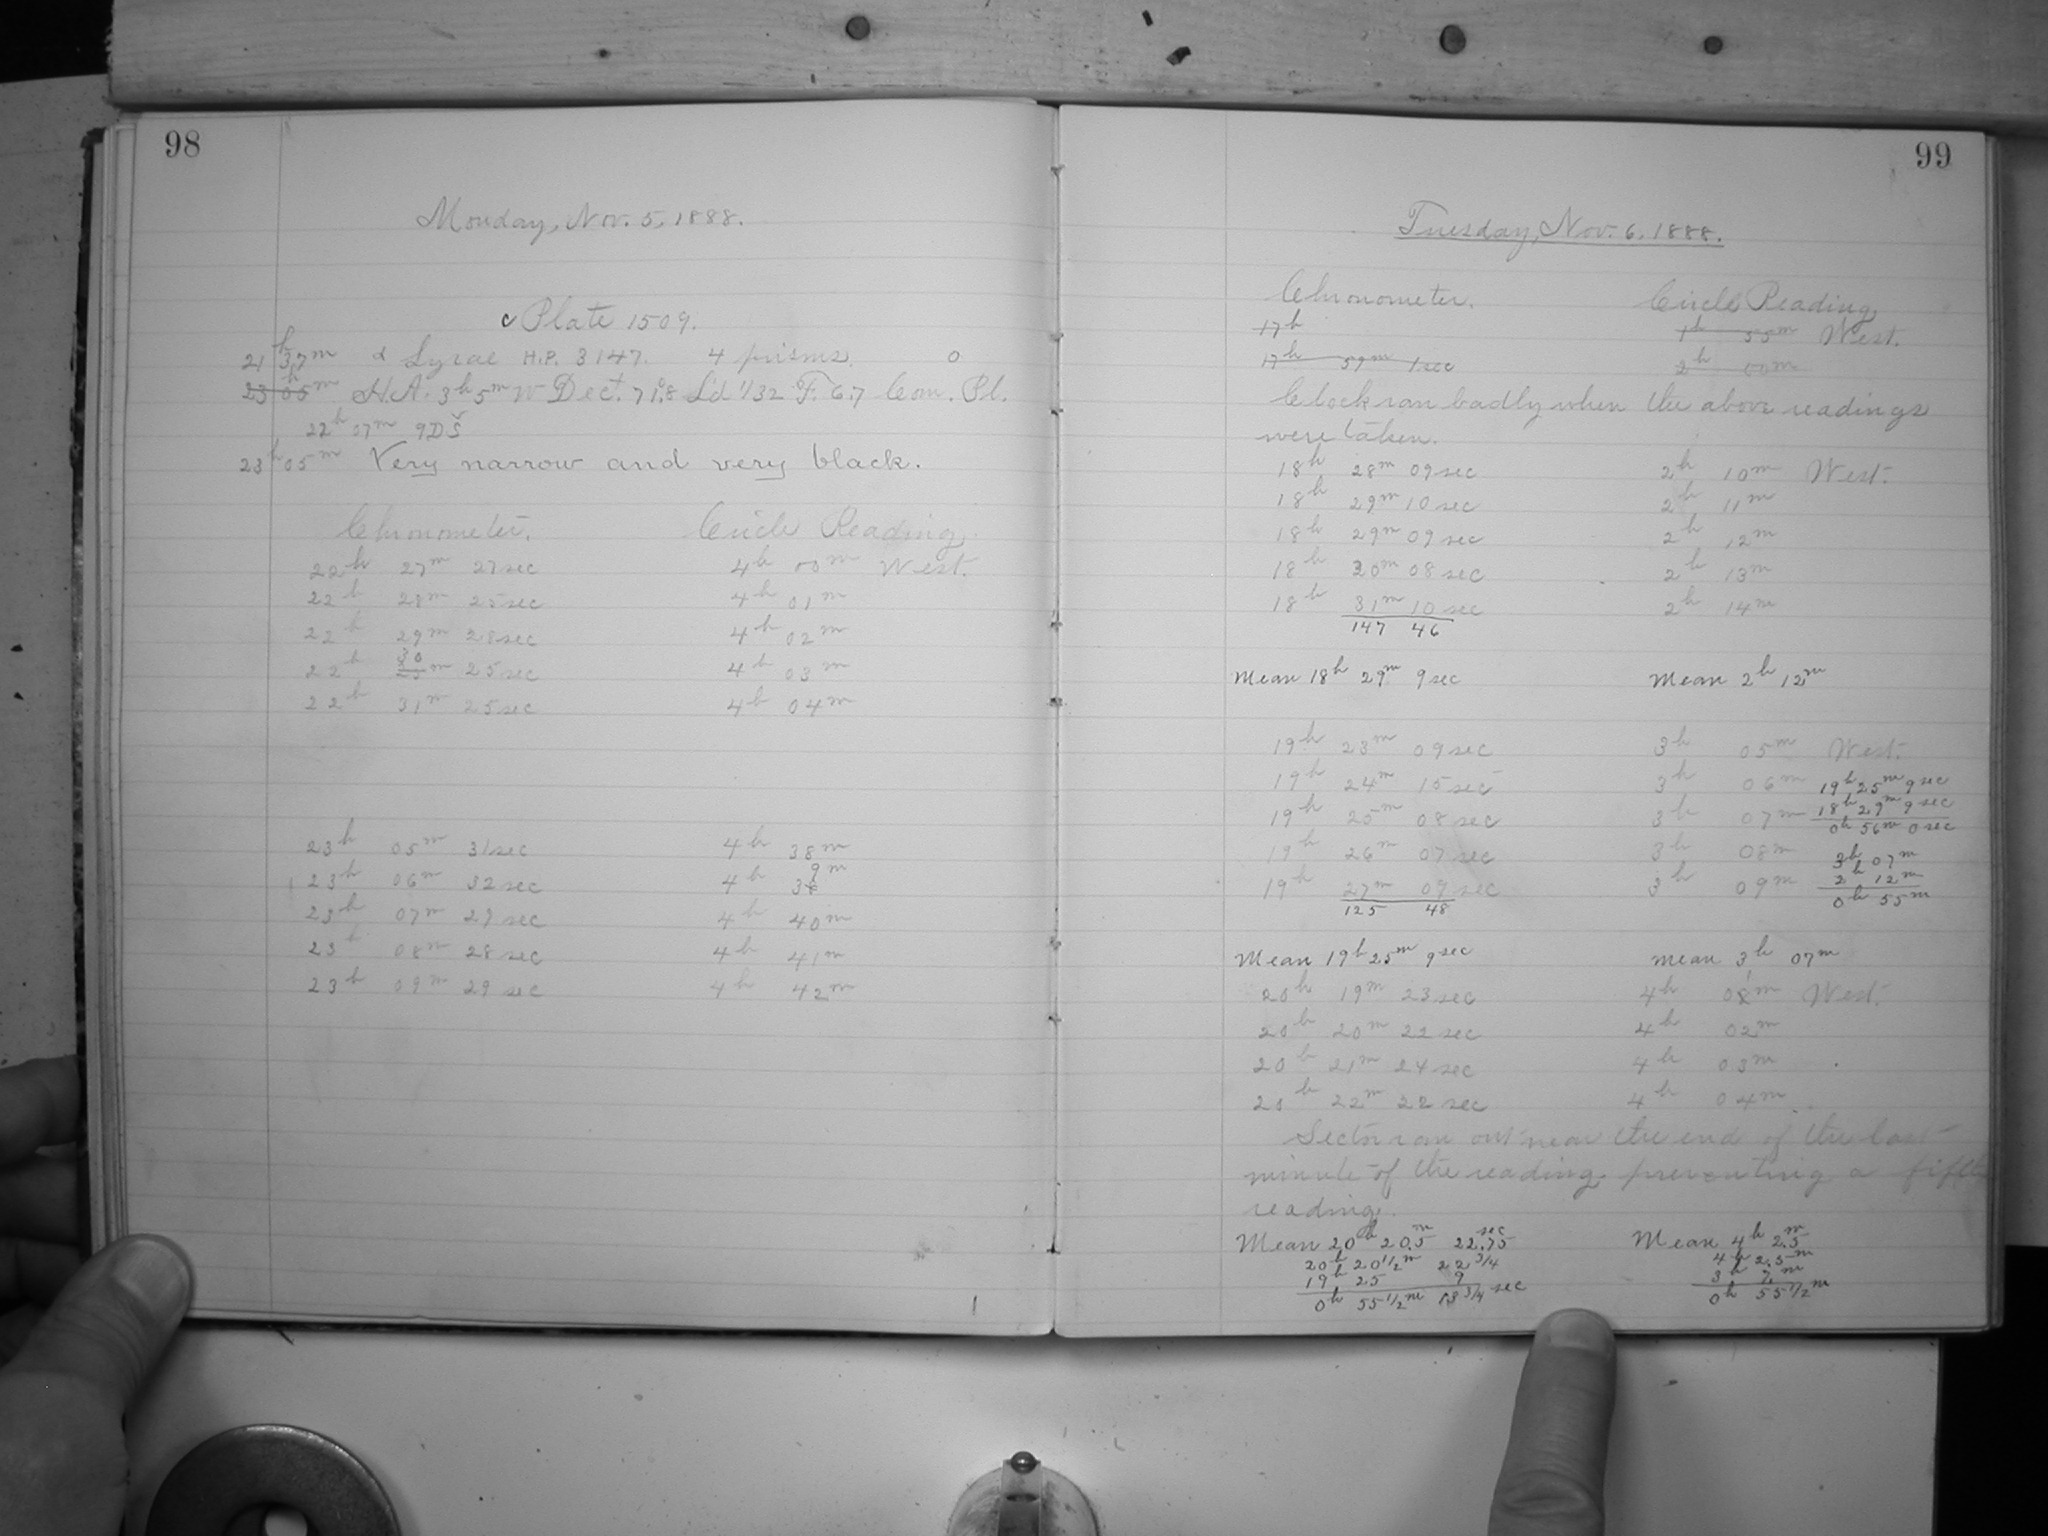 98
Monday, Nov. 5, 1888.
c Plate 1509.
21h 37m α Lyrae H.P. 3147. 4 prisms. 0
23 05m H.A. 3h 5m W Dect. 71.8 Ld 1/32 F. 6.7 Com. Pl.
22h 07m 9DS
23h 05m Very narrow and very black.
Chronometer. Circle Reading.
22h 27m 27sec 4h 00m West.
22h 28m 25sec 4h 01m
22h 29m 28sec 4h 02m
22h 30m 25sec 4h 03m
22h 31m 25sec 4h 04m
23h 05m 31sec 4h 38m
23h 06m 32sec 4h 39m
23h 07m 29sec 4h 40m
23h 08m 28sec 4h 41m
23h 09m 29sec 4h 42m
99
Tuesday, Nov. 6, 1888.
Chronometer. Circle Reading.
17h 1h 55m West.
17h 59m 1sec 2h 00m
Clock ran badly when the above readings
were taken.
18h 28m 09sec 2h 10m West.
18h 29m 10sec 2h 11m
18h 29m 09sec 2h 12m
18h 30m 08sec 2h 13m
18h 31m 10sec 2h 14m
147 46
Mean 18h 29m 9sec Mean 2h 12m
19h 23m 09sec 3h 05m West.
19h 24m 15sec 3h 06m 19h 25m 9sec
19h 25m 08sec 3h 07m 18h 29m 9sec
0h 56m 0sec
19h 26m 07sec 3h 08m 3h 07m
19h 27m 09sec 3h 09m 2h 12m
125 48 0h 55m
Mean 19h 25m 9sec mean 3h 07m
20h 19m 23sec 4h 01m West.
20h 20m 22sec 4h 02m
20h 21m 24sec 4h 03m
20h 22m 22sec 4h 04m
Sector ran out near the end of the last
minute of the reading preventing a fifth
reading.
Mean 20h 20.5m 22.75sec Mean 4h 2.5m
20h 20 1/2m 22 3/4 4h 2.5m
19h 25 9 3h 7m
0h 55 1/2m 13 3/4 sec 0h 55 1/2m